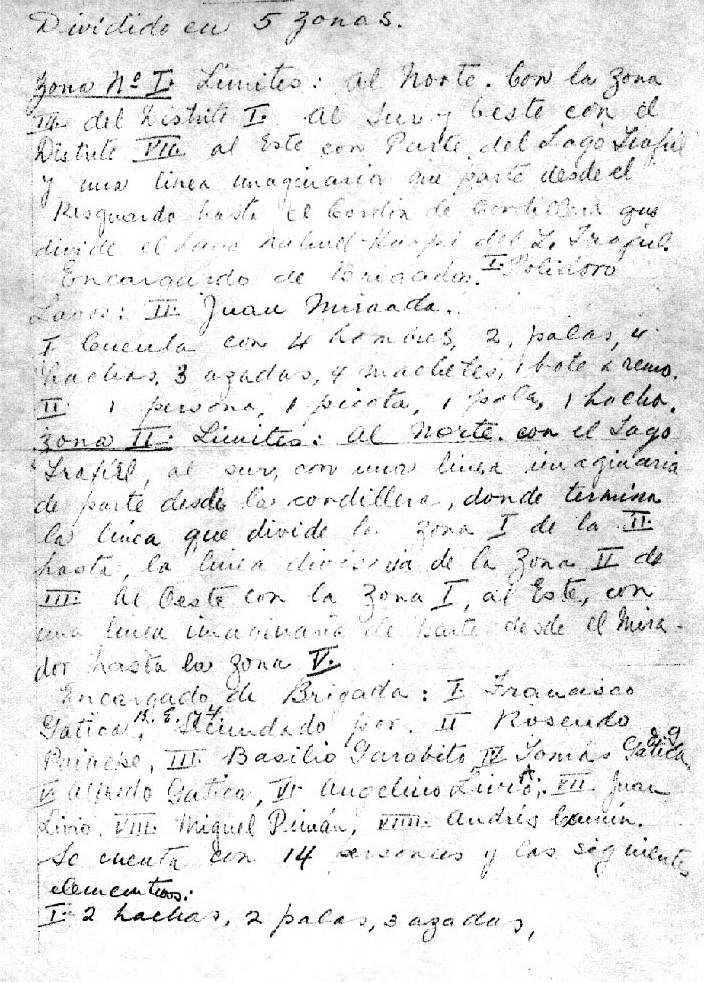 Dividido en 5 zonas.
Zona Nº I. Limites: al Norte. Con la Zona
III del Distrito I. al Sur y Oeste con el
Distrito VIII al Este con Parte del Lago Trafúl
y una linea imaginaria que parte desde el
Resguardo hasta el Cordón de Cordillera que
divide el Lago Nahuel-Huapi del L. Traful.
Encargado de Brigadas. I. Polidoro
Lagos: II Juan Miranda.
I Cuenta con 4 hombres, 2, palas, 4
hachas, 3 azadas, 4 machetes, 1 bote a remo.
II: 1 persona, 1 picota, 1 pala, 1 hacha.
Zona II: Limites: al Norte. con el Lago
Traful, al sur, con una linea imaginaria
de parte desde la cordillera, donde termina
la linea que divide la Zona I de la II.
hasta, la linea divisoria de la Zona II de
III: Al Oeste con la Zona I, al Este, con
una linea imaginaria de parte desde el Mira-
dor hasta la Zona V.
Encargado de Brigada: I Francisco
Gatica, Secundado por. II Rosendo
III Basilio Garobito, IV Tomás Gatica,
V Alfredo Gatica, VI Angelino Livio, VII Juan
Livio, VIII Miguel Punán, VIIII. Andrés
Se cuenta con 14 personas y los siguientes
elementos:
I. 2 hachas, 2 palas, 3 azadas,